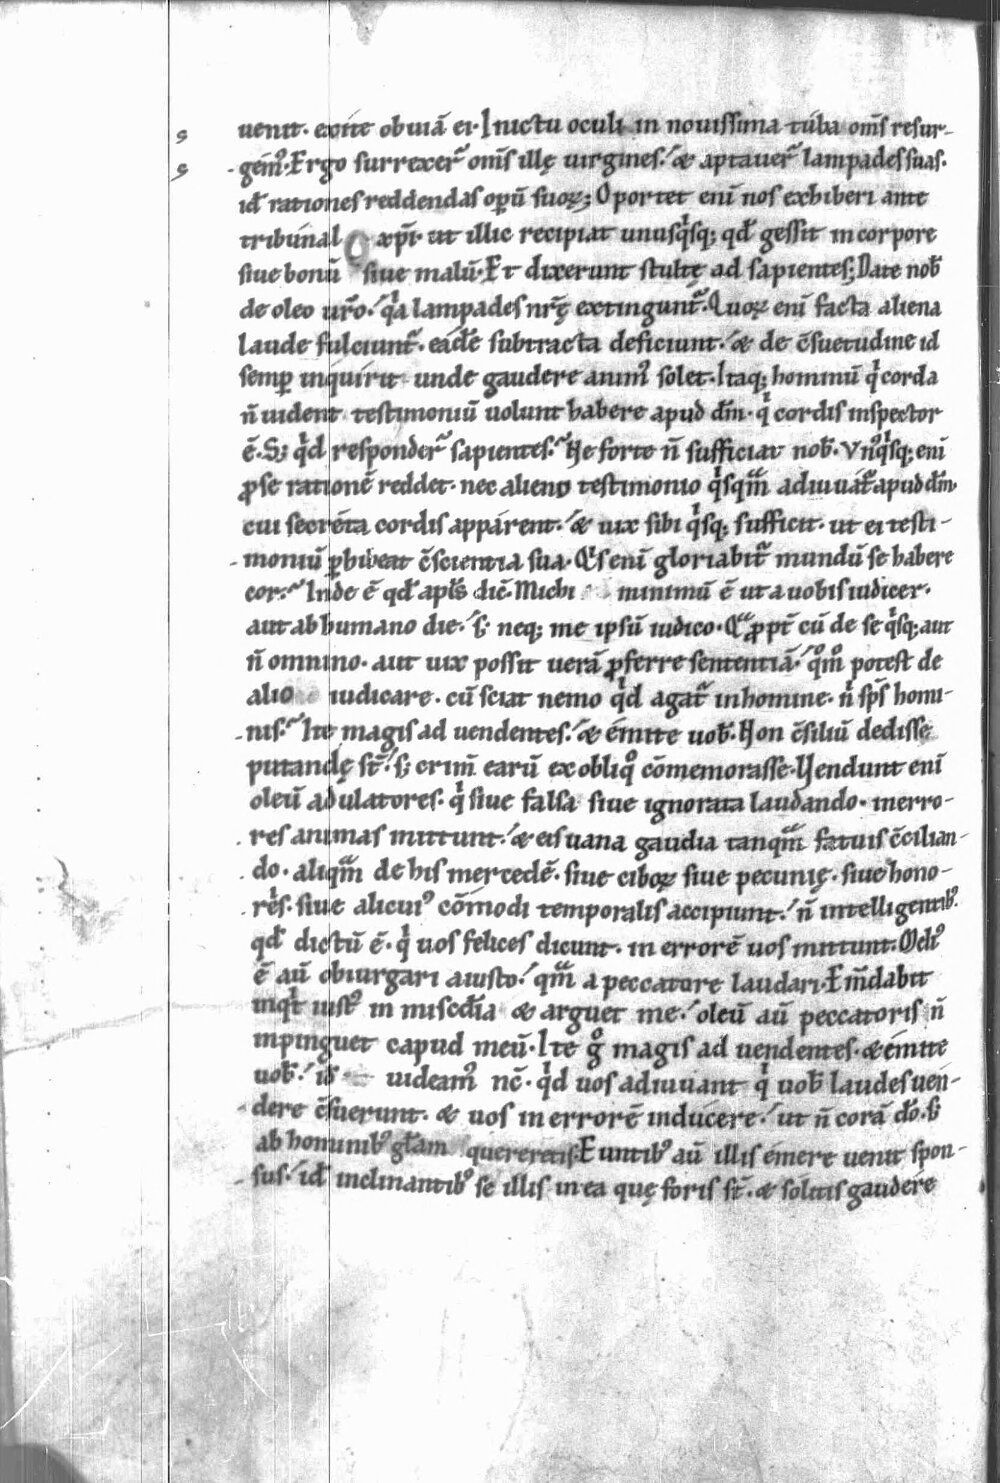 uenit. exite obuiā ei. Inictu oculi in nouissima tuba om̄s resur-
-gem᷒. Ergo surrexer̄ om̄s illę uirgines. & aptauer̄ lampades suas.
id ̄ rationes reddendas oꝑū suoꝝ; Oportet enī nos exhiberi ante
tribunal xp̄i. ut illic recipiat unusqͥsq; qd̄ gessit incorpore
siue bonū siue malū. Et dixerunt stultę ad sapientes; Date nob̄
de oleo ur̄o. qͥa lampades nr̄ę extingunt᷑. Quoꝝ enī facta aliena
laude fulciunt᷑. eád̄e subtracta deficiunt. & de c̄suetudine id
semꝑ inquirit unde gaudere anim᷒ solet. Itaq; hominū qͥ corda
n̄ uident testimoniū uolunt habere apud dm̄. qͥ cordis inspector
ē. S; qͥd responder̄ sapientes. Ne forte n̄ sufficiat nob̄. Vn᷒qͥsq; enī
ꝓse rationē reddet. nec alieno testimonio qͥsqᵃm adiuuát᷑ apud dm̄.
cui secréta cordis appárent. & uix sibi qͥsq; sufficit. ut ei testi-
-moniū ꝑhibeat c̄scientia sua. Qͥs enī gloriabit᷑ mundū se habere
cor. Inde ē qd̄ apl̄s dic̄. Michi minimū ē ut a uobis iudicer.
aut ab humano die. s; neq; me ipsū iudico. Qᵃꝓpt̄ cū de se qͥsq; aut
n̄ omnino. aut uix possit uerā ꝓferre sententiā. qͦmͦ potest de
alio iudicare. cū sciat nemo qͥd agat᷑ inhomine. nͥ sp̄s homi-
-nis. Ite magis ad uendentes. & émite uob̄. Non c̄siliū dedisse
putandę st̄. s; crim̄ earū ex obliqͦ cōmemorasse. Uendunt enī
oleū adulatores. qͥ siue falsa siue ignorata laudando. inerro-
res animas mittunt. & eis uana gaudia tanqᵃm fatuis c̄cilian-
do. aliqᵃm de his mercedē. siue ciboꝝ siue pecunię. siue hono-
rēs. siue alicui᷒ cōmodi temporalis accipiunt. n̄ intelligentib᷒.
qd̄ dictū ē. qͥ uos felices dicunt. in errorē uos mittunt. Meli᷒
ē aū obiurgari a iusto. qᵃm a peccatore laudari. Em̄dabit
inqͥt iust᷒ in misc̄dia & arguet me. oleū aū peccatoris n̄
inpinguet capud meū. Ite gͦ magis ad uendentes. & émite
uob̄. id̄ uideam᷒ nc̄. qͥd uos adiuuant qͥ uob̄ laudes uen-
-dere c̄suerunt. & uos in errorē inducere. ut n̄ corā do̅. s;
ab hominib᷒ gl̄am quereretis. Euntib᷒ aū illis emere uenit spon-
-sus. id̄ inclinantib᷒ se illis in ea quę foris st̄. & sólitis gaudére